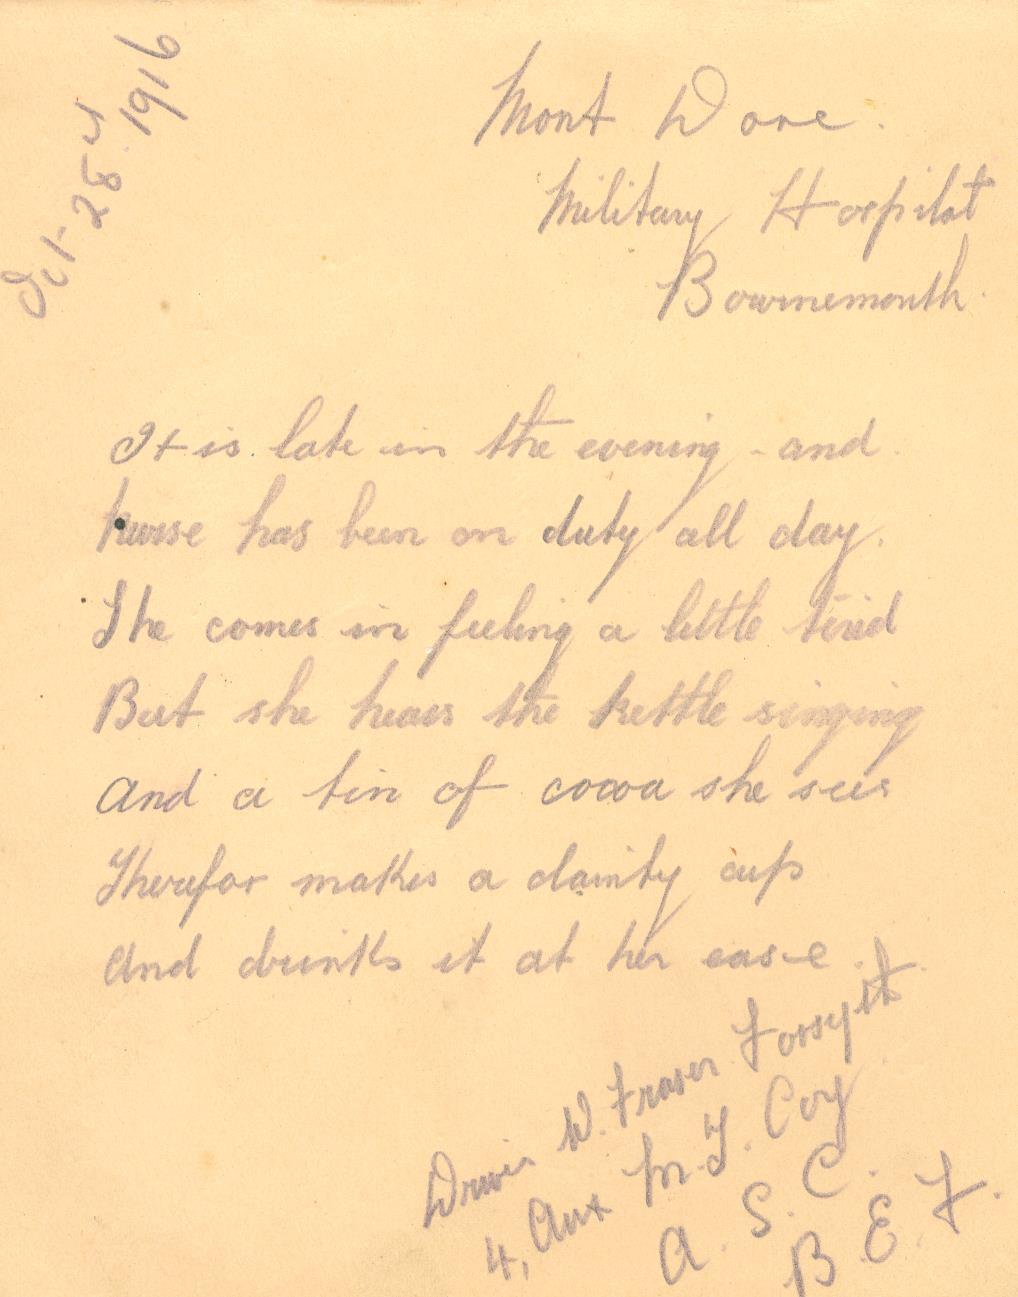 Oct-28th 1916
Mont Dore.
Military Hospilat
Bournemouth.
It is late in the evening - and
Nurse has been on duty all day.
She comes in feeling a little tired
But she hears the kettle singing
And a tin of cocoa she sees
Therefor makes a dainty cup
And drinks it at her ease.
Driver W. Fraser Forsyth
4, Aux M.T. Coy
A.S.C.
B.E.F.